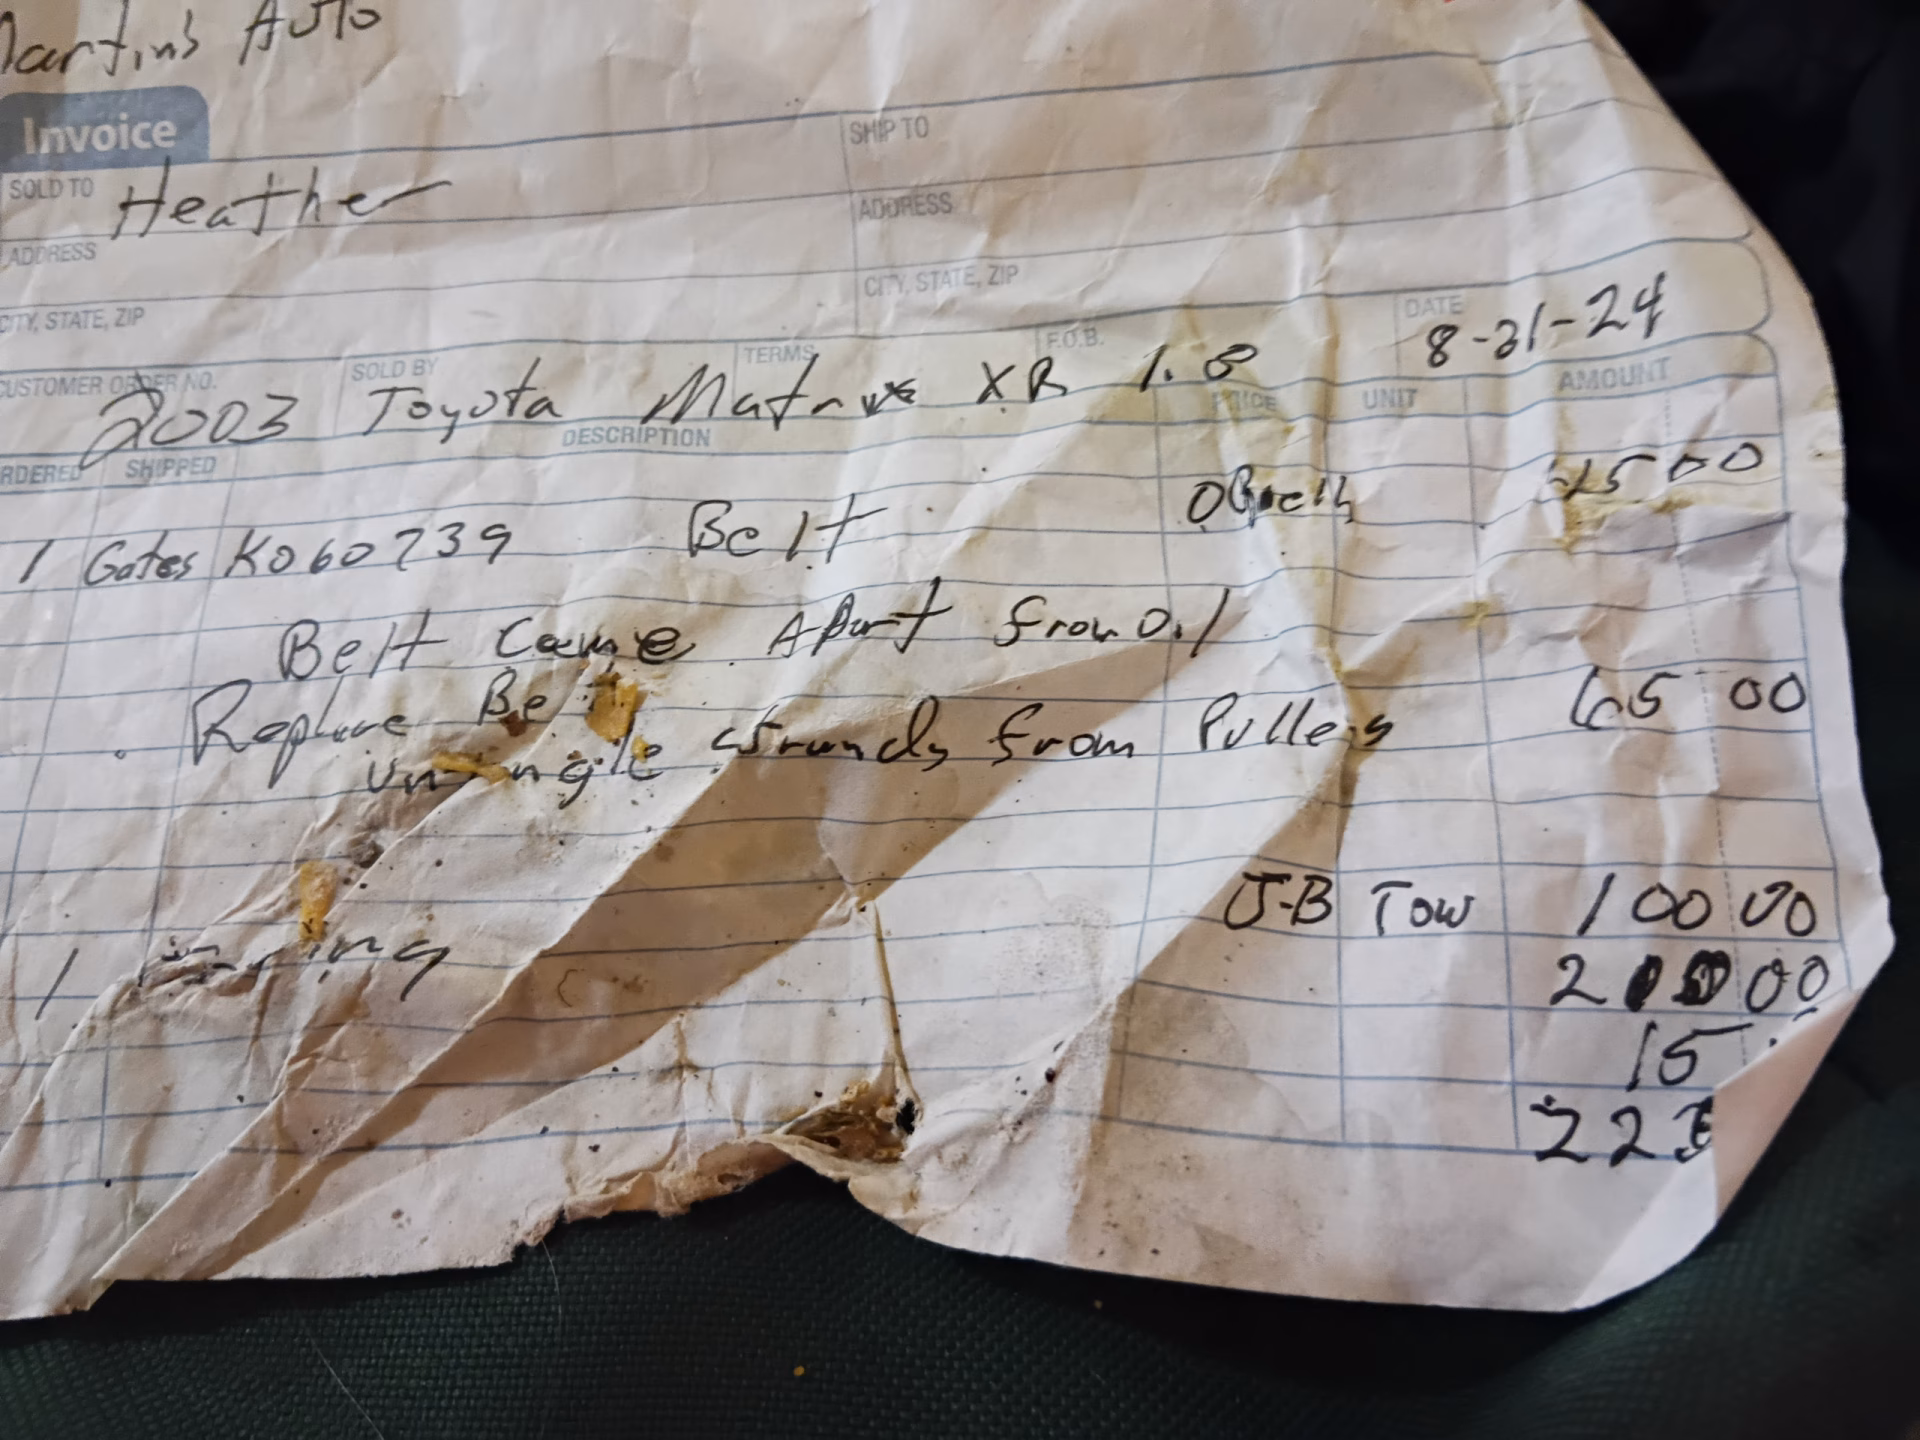 Martin's Auto
Invoice
SOLD TO Heather
SHIP TO
ADDRESS
ADDRESS
CITY, STATE, ZIP
CITY, STATE, ZIP
CUSTOMER ORDER NO. SOLD BY TERMS F.O.B. DATE
2003 Toyota Matrix XR 1.8 8-21-24
ORDERED SHIPPED DESCRIPTION PRICE UNIT AMOUNT
1 Gates K060739 Belt OReilly 45 00
Belt Came Apart from Oil
Replace Belt
untangle strands from Pulleys 65 00
J-B Tow 100 00
1 2 00
15
22